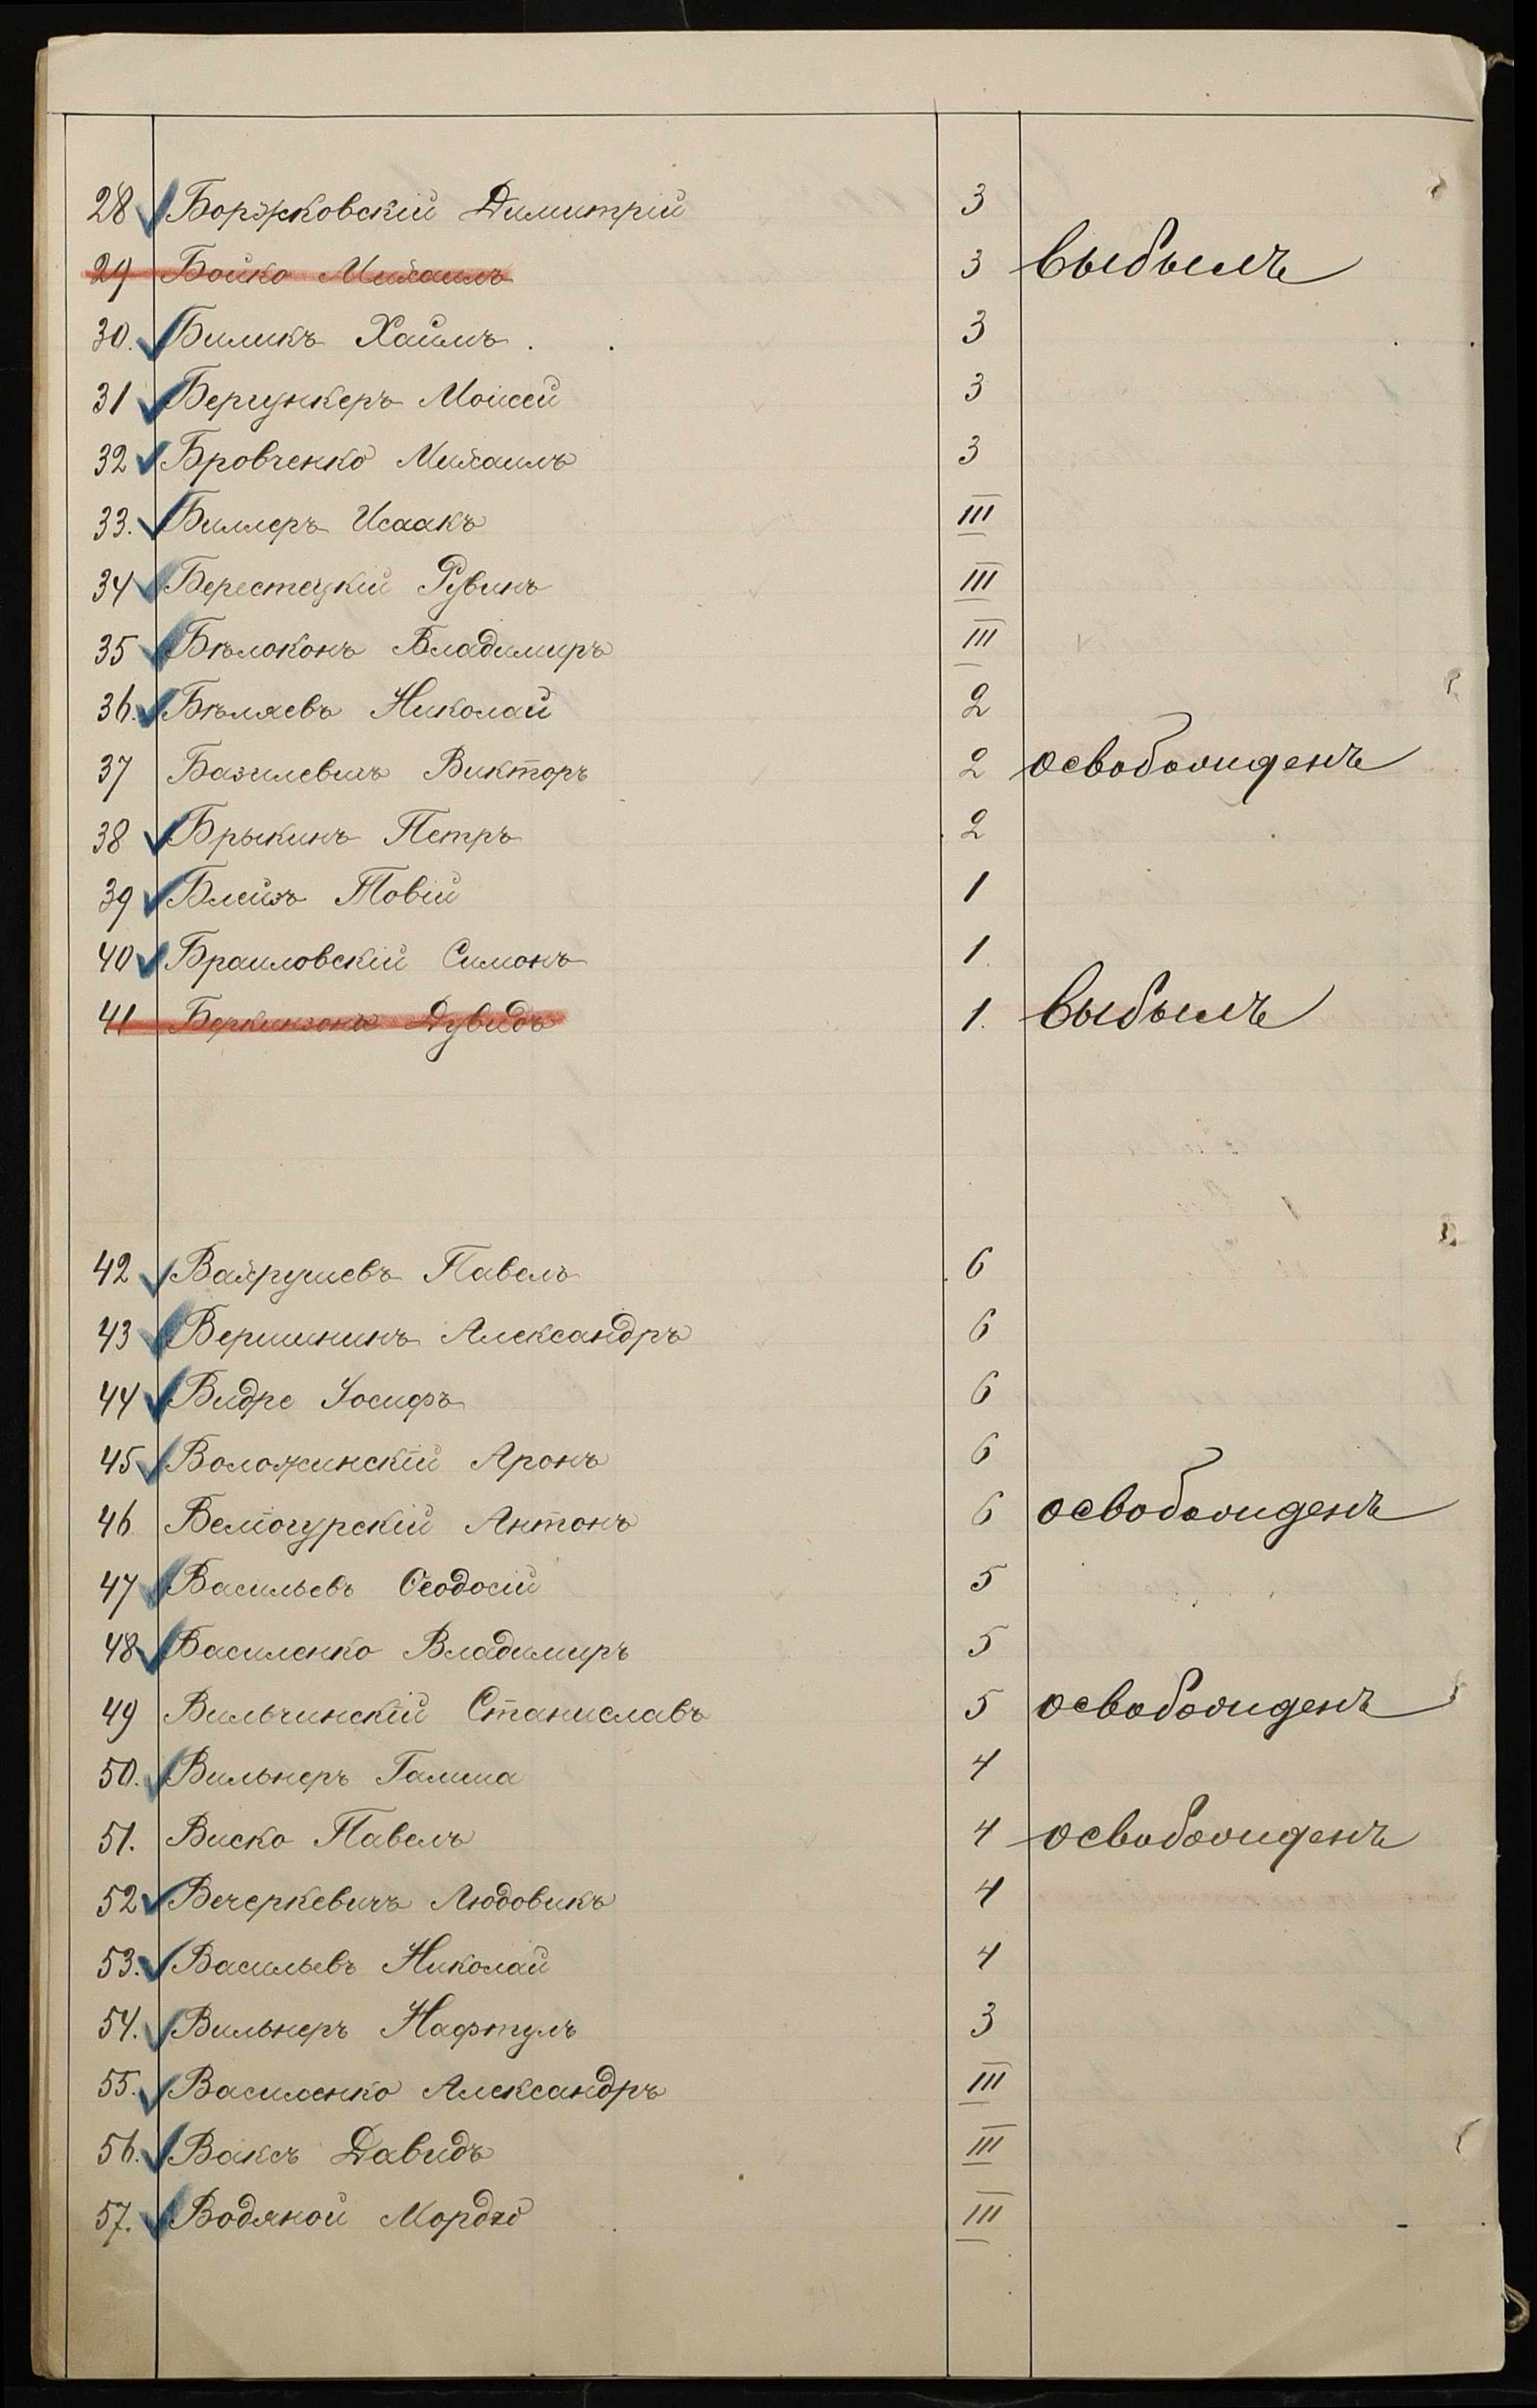 28 Боржковскій Димитрій 3
29 Бойко Михаилъ 3 выбылъ
30. Биликъ Хаимъ 3
31 Берункеръ Моисей 3
32 Бровченко Михаилъ 3
33. Биллеръ Исаакъ III
34 Берестецкій Рувинъ III
35 Бѣлоконь Владимиръ III
36. Бѣляевъ Николай 2
37 Базилевичъ Викторъ 2 освобожденъ
38 Брыкинъ Петръ 2
39 Блейзъ Товій 1
40 Браиловскій Симонъ 1.
41 Беркинзонъ Дувидъ 1. выбылъ
42 Вахрушевъ Павелъ 6
43 Вершининъ Александръ 6
44 Видре Іосифъ 6
45 Воложинскій Аронъ 6
46 Велогурскій Антонъ 6 освобожденъ
47 Васильевъ Ѳеодосій 5
48 Василенко Владимиръ 5
49 Вильчинскій Станиславъ 5 освобожденъ
50. Вильнеръ Гамша 4
51. Виско Павелъ 4 освобожденъ
52 Вечеркевичъ Людовикъ 4
53. Васильевъ Николай 4
54. Вильнеръ Нафтулъ 3
55. Василенко Александръ III
56. Ваксъ Давидъ III
57. Водяной Мордко III